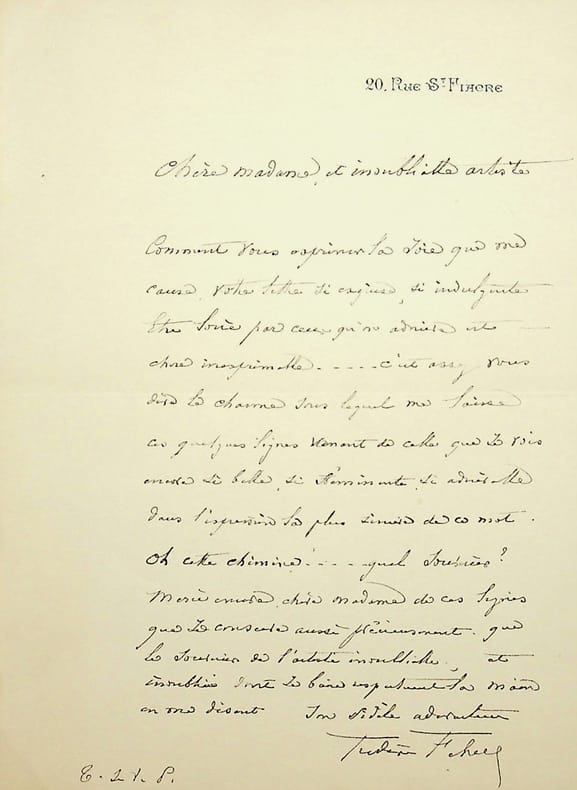 20. Rue St. Fiacre
Chère madame, et inoubliable artiste
Comment vous exprimer la joie que me
cause votre lettre si exquise, si indulgente
Être louée par ceux qu'on admire est
chose inexprimable. - - - - c'est assez vous
dire le charme sous lequel me laisse
ces quelques lignes venant de celle que je vois
encore si belle, si éminente si admirable
dans l'expression la plus sincère de ce mot.
Oh cette chimère! - - - quel souvenir?
Merci encore, chère madame de ces lignes
que je conserve aussi précieusement que
le souvenir de l'artiste inoubliable, et
inoubliée dont je baise la main
en me disant son fidèle adorateur
T. S. V. P.